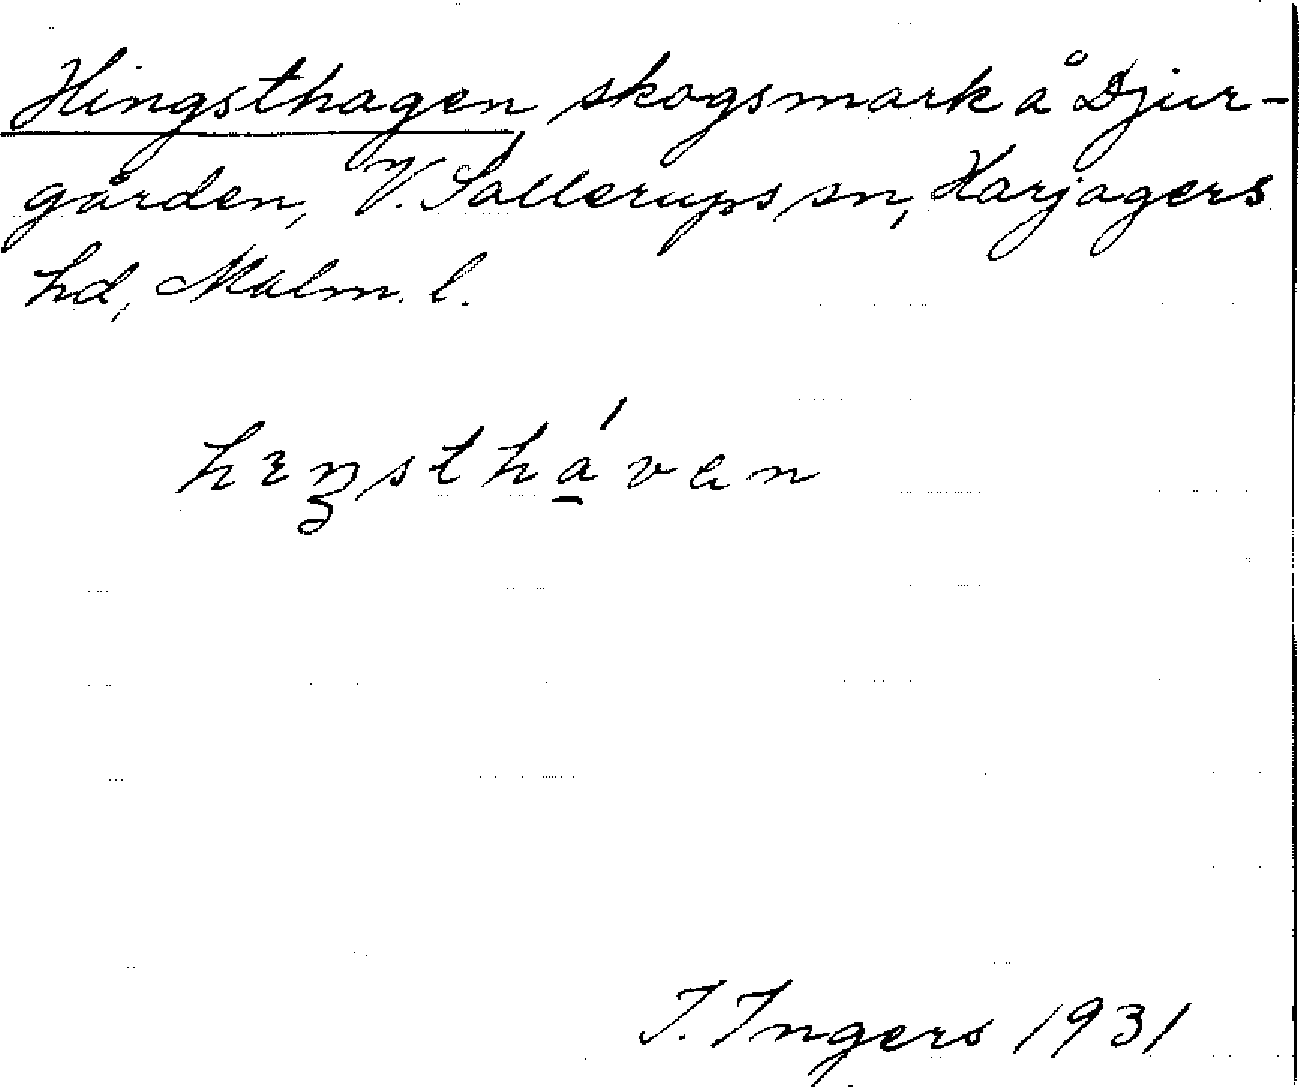 Hingsthagen skogsmark å Djur-
gården, V. Sallerups sn, Harjagers
hd, Malm. l.
hɛŋsthá̠van
I. Ingers 1931